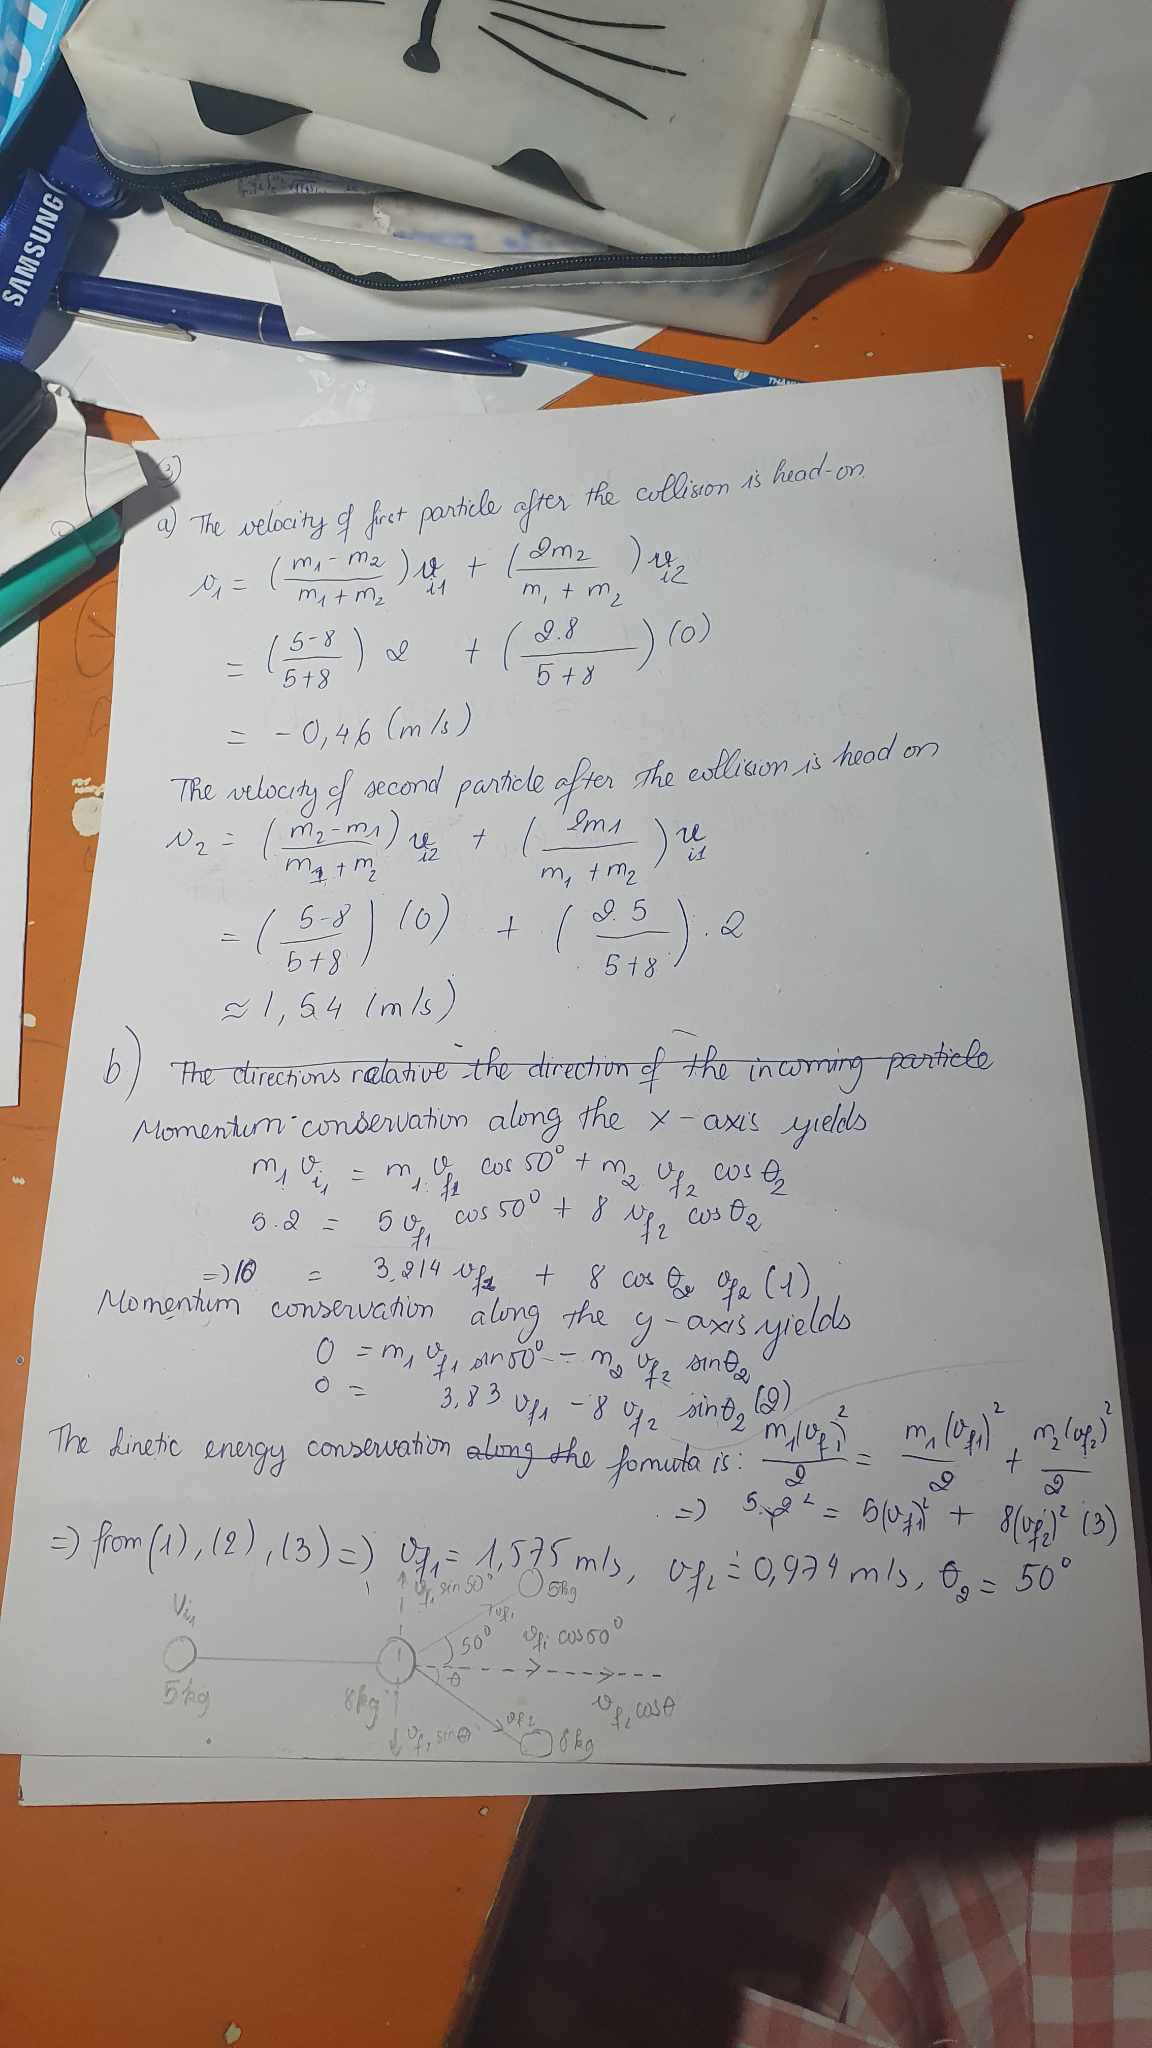 SAMSUNG
3)
a) The velocity of first particle after the collision is head-on.
v₁ = (m₁ - m₂ / m₁ + m₂) v_i1 + (2m₂ / m₁ + m₂) v_i2
= (5-8 / 5+8) 2 + (2.8 / 5+8) (0)
= -0,46 (m/s)
The velocity of second particle after the collision is head on
v₂ = (m₂-m₁ / m₁ + m₂) v_i2 + (2m₁ / m₁ + m₂) v_i1
= (5-8 / 5+8) (0) + (2.5 / 5+8) . 2
≈ 1,54 (m/s)
b) The directions relative the direction of the incoming particle
Momentum conservation along the x-axis yields
m₁ v_i1 = m₁. v_f1 cos 50° + m₂ v_f2 cos θ₂
5.2 = 5 v_f1 cos 50° + 8 v_f2 cos θ₂
=> 10 = 3.214 v_f1 + 8 cos θ₂ v_f2 (1)
Momentum conservation along the y-axis yields
0 = m₁ v_f1 sin 50° - m₂ v_f2 sin θ₂
0 = 3.83 v_f1 - 8 v_f2 sin θ₂ (2)
The kinetic energy conservation along the fomuta is: m₁(v_f1)² / 2 = m₁(v_f1)² / 2 + m₂(v_f2)² / 2
=> 5.2² = 5(v_f1)² + 8(v_f2)² (3)
=> from (1), (2), (3) => v_f1 = 1,575 m/s, v_f2 = 0,974 m/s, θ₂ = 50°
v_f1 sin 50°
5kg
V_i1
v_f1
50°
v_f1 cos 50°
θ
5kg
8kg
v_f2 cos θ
v_f2 sin θ
v_f2
8kg